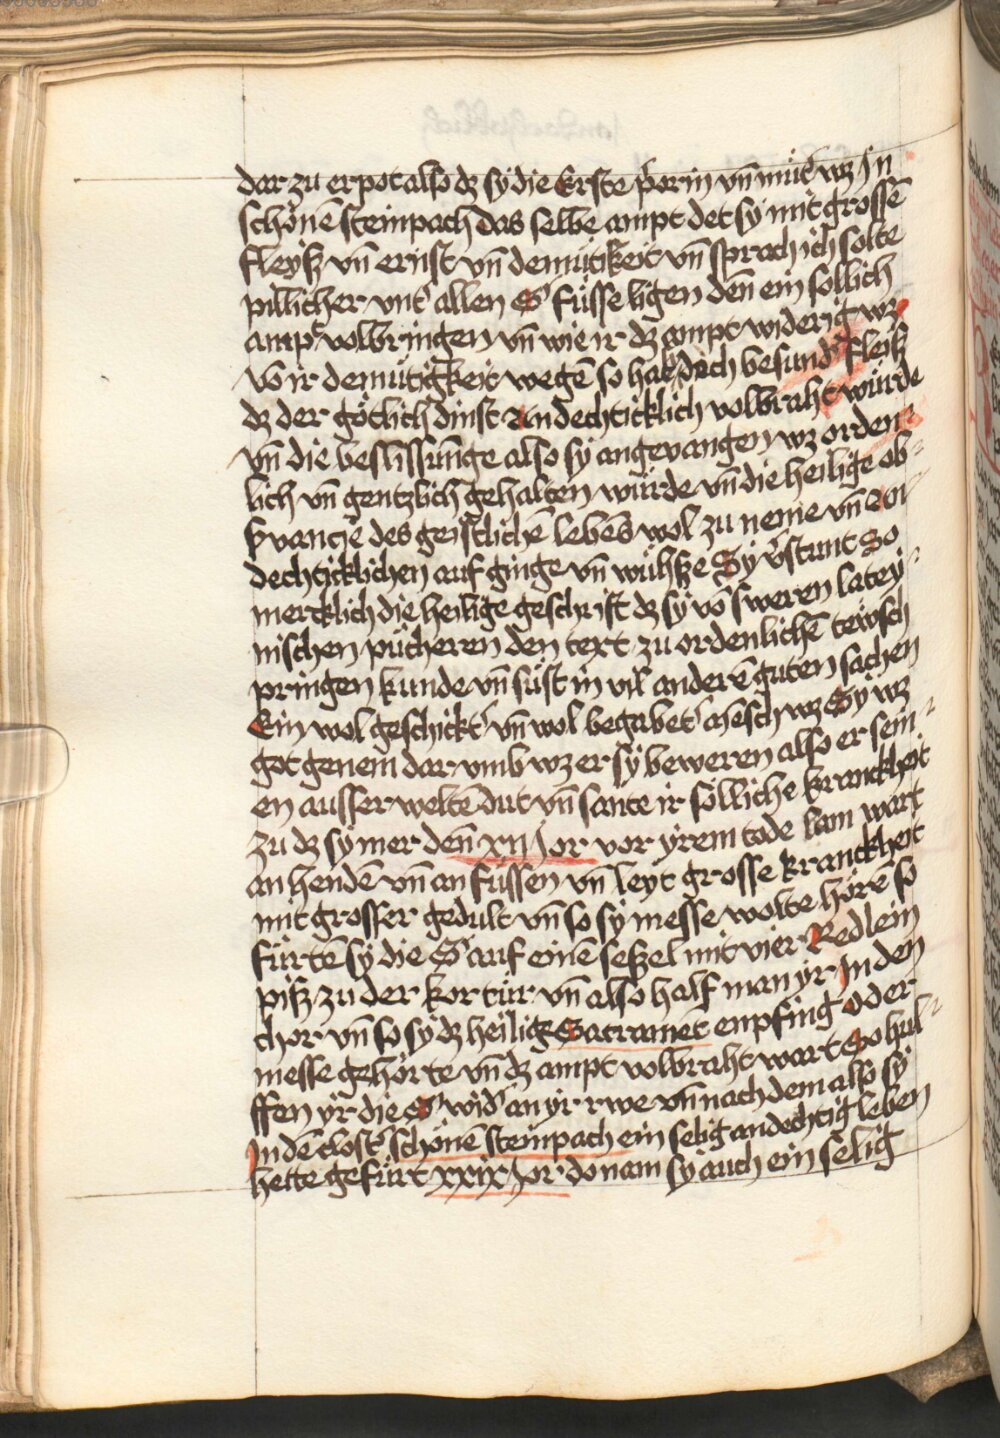 dar zu erpot also dz sy die Erste priorin vn̄ mut᷑ wz Jn
schonē steinpach das selbe ampt det sy mit grossē
fleysz vn̄ ernst vn̄ demutikeit vn̄ sprach ich solte
pillicher vnt᷑ allen S᷑ füsse ligen den̄ ein sollich
ampt volbringen vn̄ wie ir dz ampt widerig wz
vō ir demutigkeit wegē so hat doch besund᷑n fleisz
dz der gotlich dinst andechticklich volbraht würde
vn̄ die beslissunge also sy angevangen wz orden
lich vn̄ gentzlich gehalten würde vn̄ die heilige ob
servancie des geistlichē lebens wol zu neme vn̄ an
dechticklichen auf ginge vn̄ wuhsze Sy v᷑stunt so
mercklich die heilige geschrift dz sy vō sweren latey
nischen pucheren den text zu ordenlichē tewsch
pringen kunde vn̄ sust in vil anderē guten sachen
Ein wol geschickt᷑ vn̄ wol begabet᷑ mēsch wz Sy wz
got genem dar vmb wz er sy beweren also er sein
en ausserwelten dut vn̄ sante ir solliche kranckheit
zu dz sy mer den̄ xii Jor vor yrem tode lam wart
an hendē vn̄ an füssen vn̄ leyt grosse kranckheit
mit grosser gedult vn̄ so sy messe wolte hörē so
fürtē sy die S᷑ auf einē seszel mit vier Redlein
pisz zu der kor tür vn̄ also half man yr Jn den
chor vn̄ so sy dz heilig Sacramēt enpfing oder
messe gehörte vn̄ dz ampt volbraht wart So hul
ffen yr die S᷑ wid᷑ an yr rwe vn̄ nach dem also sy
Jn dē clost᷑ schönē steinpach ein selig andechtig leben
hette gefürt xxix Jor do nam sy auch ein selig